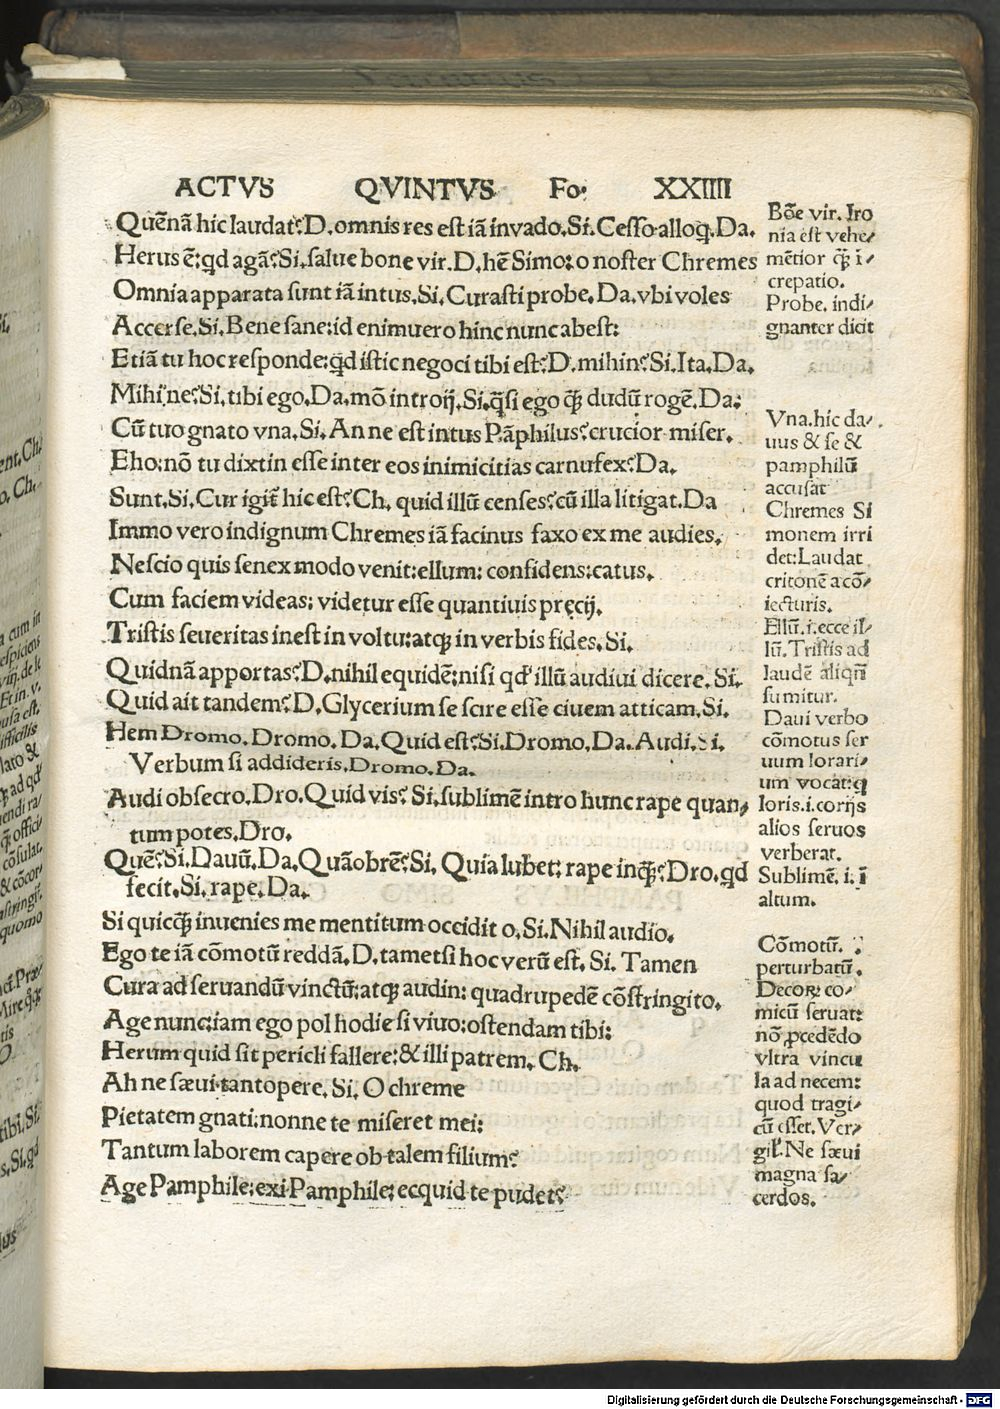 ACTVS QVINTVS Fo. XXIIII
Quẽnã hic laudat?D.omnis res est iã invado.Si.Cesso alloq.Da.
Herus ẽ:qd agã?Si.salue bone vir.D.hẽ Simo:o noster Chremes
Omnia apparata sunt iã intus.Si.Curasti probe.Da.vbi voles
Accerse.Si.Bene sane:id enimuero hinc nunc abest:
Etiã tu hoc responde:qd istic negoci tibi est?D.mihin?Si.Ita.Da.
Mihi ne?Si.tibi ego.Da.mõ introij.Si.q̃si ego q̃ dudũ rogẽ.Da:
Cũ tuo gnato vna.Si.An ne est intus Pãphilus?crucior miser.
Eho:nõ tu dixtin esse inter eos inimicitias carnufex?Da.
Sunt.Si.Cur igit̃ hic est?Ch. quid illũ censes?cũ illa litigat.Da
Immo vero indignum Chremes iã facinus faxo ex me audies.
Nescio quis senex modo venit:ellum: cõfidens:catus.
Cum faciem videas: videtur esse quantiuis pręcij.
Tristis seueritas inest in voltu:atq; in verbis fides.Si.
Quidnã apportas?D.nihil equidẽ:nisi qd illũ audiui dicere.Si.
Quid ait tandem?D.Glycerium se scire esse ciuem atticam.Si.
Hem Dromo.Dromo.Da.Quid est?Si.Dromo.Da.Audi.Si.
Verbum si addideris.Dromo.Da.
Audi obsecro.Dro.Quid vis?Si.sublimẽ intro hunc rape quan/
tum potes.Dro.
Quẽ?Si.Dauũ.Da.Quãobrẽ?Si. Quia lubet: rape inq̃?Dro.qd
fecit.Si.rape.Da.
Si quicq̃ inuenies me mentitum occidito.Si.Nihil audio.
Ego te iã cõmotũ reddã.D.tametsi hoc verũ est.Si. Tamen
Cura ad seruandũ vinctũ:atq; audin: quadrupedẽ cõstringito.
Age nunc:iam ego pol hodie si viuo:ostendam tibi:
Herum quid sit pericli fallere:& illi patrem. Ch.
Ah ne sæui tantopere.Si.O chreme
Pietatem gnati:nonne te miseret mei:
Tantum laborem capere ob talem filium?
Age Pamphile:exi Pamphile:ecquid te pudet?
Bõe vir. Iro
nia est vehe/
mẽtior q̃ ĩ/
crepatio.
Probe. indi/
gnanter dicit
Vna.hic da/
uus & se &
pamphilũ
accusat
Chremes Si
monem irri
det:Laudat
critonẽ a cõ/
iecturis.
Ellũ.i.ecce il/
lũ.Tristis ad
laudẽ aliqñ
sumitur.
Daui verbo
cõmotus ser
uum lorari/
um vocat:q
loris.i.corijs
alios seruos
verberat.
Sublimẽ.i.ĩ
altum.
Cõmotũ.
perturbatũ.
Decorꝫ co/
micũ seruat:
nõ ꝓcedẽdo
vltra vincu
la ad necem:
quod tragi/
cũ esset.Ver/
gil̃.Ne sæui
magna sa/
cerdos.
Digitalisierung gefördert durch die Deutsche Forschungsgemeinschaft - DFG